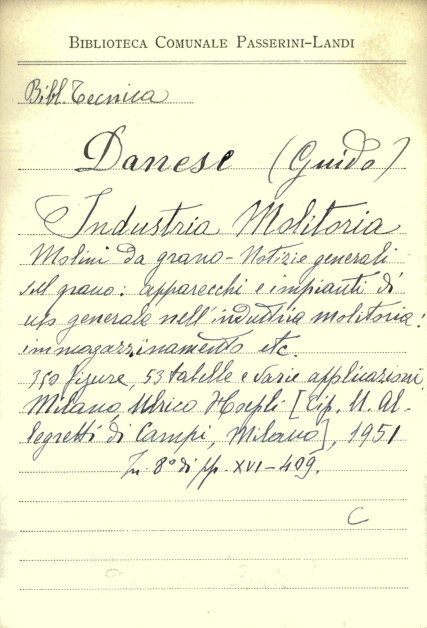 BIBLIOTECA COMUNALE PASSERINI-LANDI
Bibl. Tecnica
Danese (Guido)
Industria Molitoria
Molini da grano - Notizie generali
sul grano: apparecchi e impianti di
uso generale nell'industria molitoria:
immagazzinamento etc.
350 figure, 53 tabelle e varie applicazioni.
Milano, Ulrico Hoepli [Tip. U. Al-
legretti di Campi, Milano], 1951
In 8° di pp. XVI-409.
C